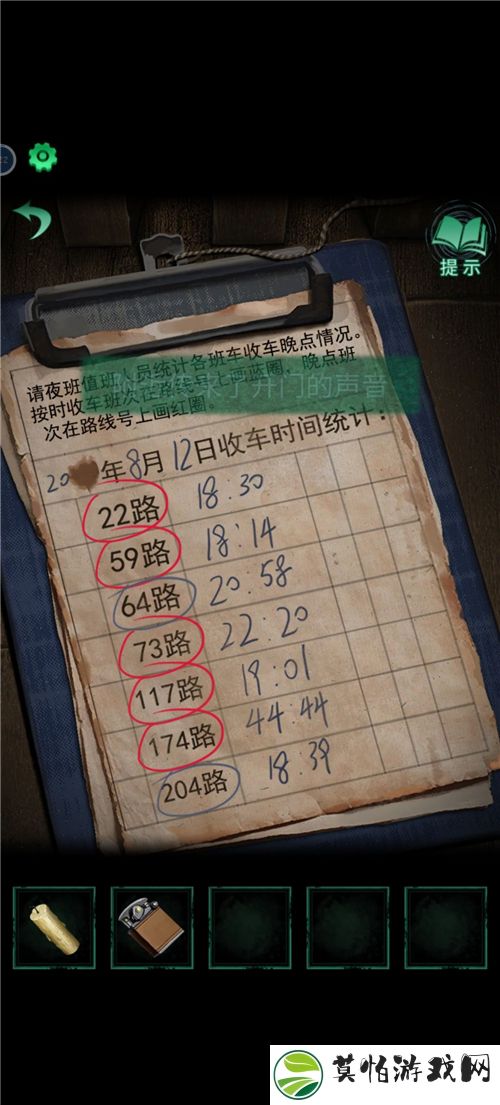 提示
请夜班值班人员统计各班车收车晚点情况。
按时收车班次在路线号上画蓝圈，晚点班
次在路线号上画红圈。
来了开门的声音
20 年8月12日收车时间统计：
22路 18:30
59路 18:14
64路 20:58
73路 22:20
117路 19:01
174路 44:44
204路 18:39
莫怕游戏网